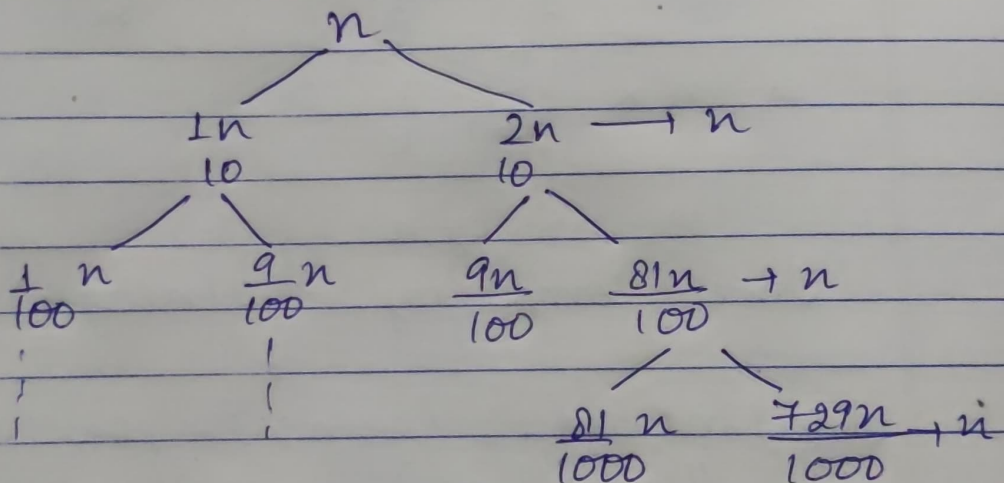 n
1n 2n → n
10 10
1/100 n 9/100 n 9n/100 81n/100 → n
81/1000 n 729n/1000 → n